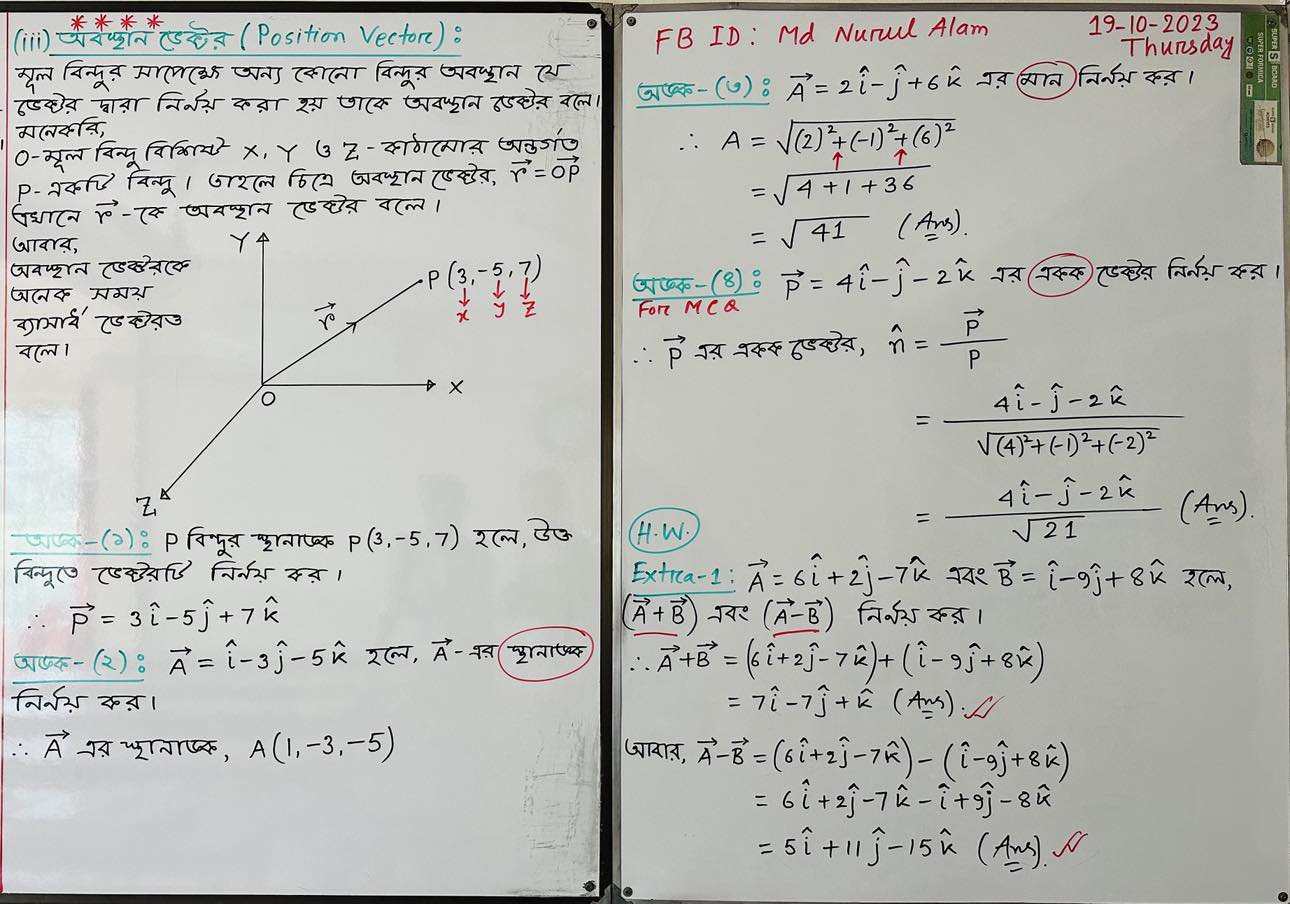 * * * *
(iii) অবস্থান ভেক্টর (Position Vector):
মূল বিন্দুর সাপেক্ষে অন্য কোনো বিন্দুর অবস্থান যে
ভেক্টর দ্বারা নির্নয় করা হয় তাকে অবস্থান ভেক্টর বলে।
মনেকরি,
O-মূল বিন্দু বিশিষ্ট X, Y ও Z-কাঠামোর অন্তর্গত
P-একটি বিন্দু। তাহলে চিত্রে অবস্থান ভেক্টর, r⃗ = OP⃗
এখানে r⃗-কে অবস্থান ভেক্টর বলে।
আবার,
অবস্থান ভেক্টরকে
অনেক সময়
ব্যাসার্ধ ভেক্টরও
বলে।
Y
P(3, -5, 7)
x y z
r⃗
X
O
Z
অঙ্ক-(১): P বিন্দুর স্থানাঙ্ক P(3, -5, 7) হলে, উক্ত
বিন্দুতে ভেক্টরটি নির্নয় কর।
∴ P⃗ = 3î - 5ĵ + 7k̂
অঙ্ক-(২): A⃗ = î - 3ĵ - 5k̂ হলে, A⃗-এর স্থানাঙ্ক
নির্নয় কর।
∴ A⃗ এর স্থানাঙ্ক, A(1, -3, -5)
FB ID: Md Nurul Alam
19-10-2023
Thursday
অঙ্ক-(৩): A⃗ = 2î - ĵ + 6k̂ এর মান নির্নয় কর।
∴ A = √((2)² + (-1)² + (6)²)
= √(4 + 1 + 36)
= √41 (Ans).
অঙ্ক-(৪): P⃗ = 4î - ĵ - 2k̂ এর একক ভেক্টর নির্নয় কর।
For MCQ
∴ P⃗ এর একক ভেক্টর, n̂ = P⃗ / P
= (4î - ĵ - 2k̂) / √((4)² + (-1)² + (-2)²)
= (4î - ĵ - 2k̂) / √21 (Ans).
H.W.
Extra-1: A⃗ = 6î + 2ĵ - 7k̂ এবং B⃗ = î - 9ĵ + 8k̂ হলে,
(A⃗ + B⃗) এবং (A⃗ - B⃗) নির্নয় কর।
∴ A⃗ + B⃗ = (6î + 2ĵ - 7k̂) + (î - 9ĵ + 8k̂)
= 7î - 7ĵ + k̂ (Ans).
আবার, A⃗ - B⃗ = (6î + 2ĵ - 7k̂) - (î - 9ĵ + 8k̂)
= 6î + 2ĵ - 7k̂ - î + 9ĵ - 8k̂
= 5î + 11ĵ - 15k̂ (Ans).